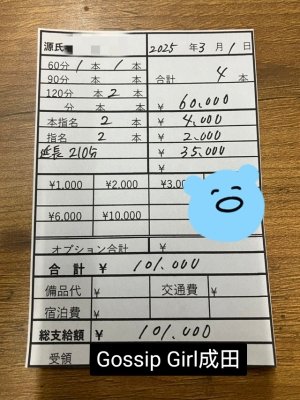 源氏 2025 年 3 月 1 日
60分 1 本 1 本
90分 本 本 合計 4 本
120分 本 2 本
分 本 本 ¥ 60,000
本指名 2 本 ¥ 4,000
指名 2 本 ¥ 2,000
延長 210分 ¥ 35,000
¥1,000 ¥2,000 ¥3,0
¥6,000 ¥10,000
オプション合計 ¥
合計 ¥ 101,000
備品代 ¥ 交通費 ¥
宿泊費 ¥
総支給額 ¥ 101,000
受領
Gossip Girl成田